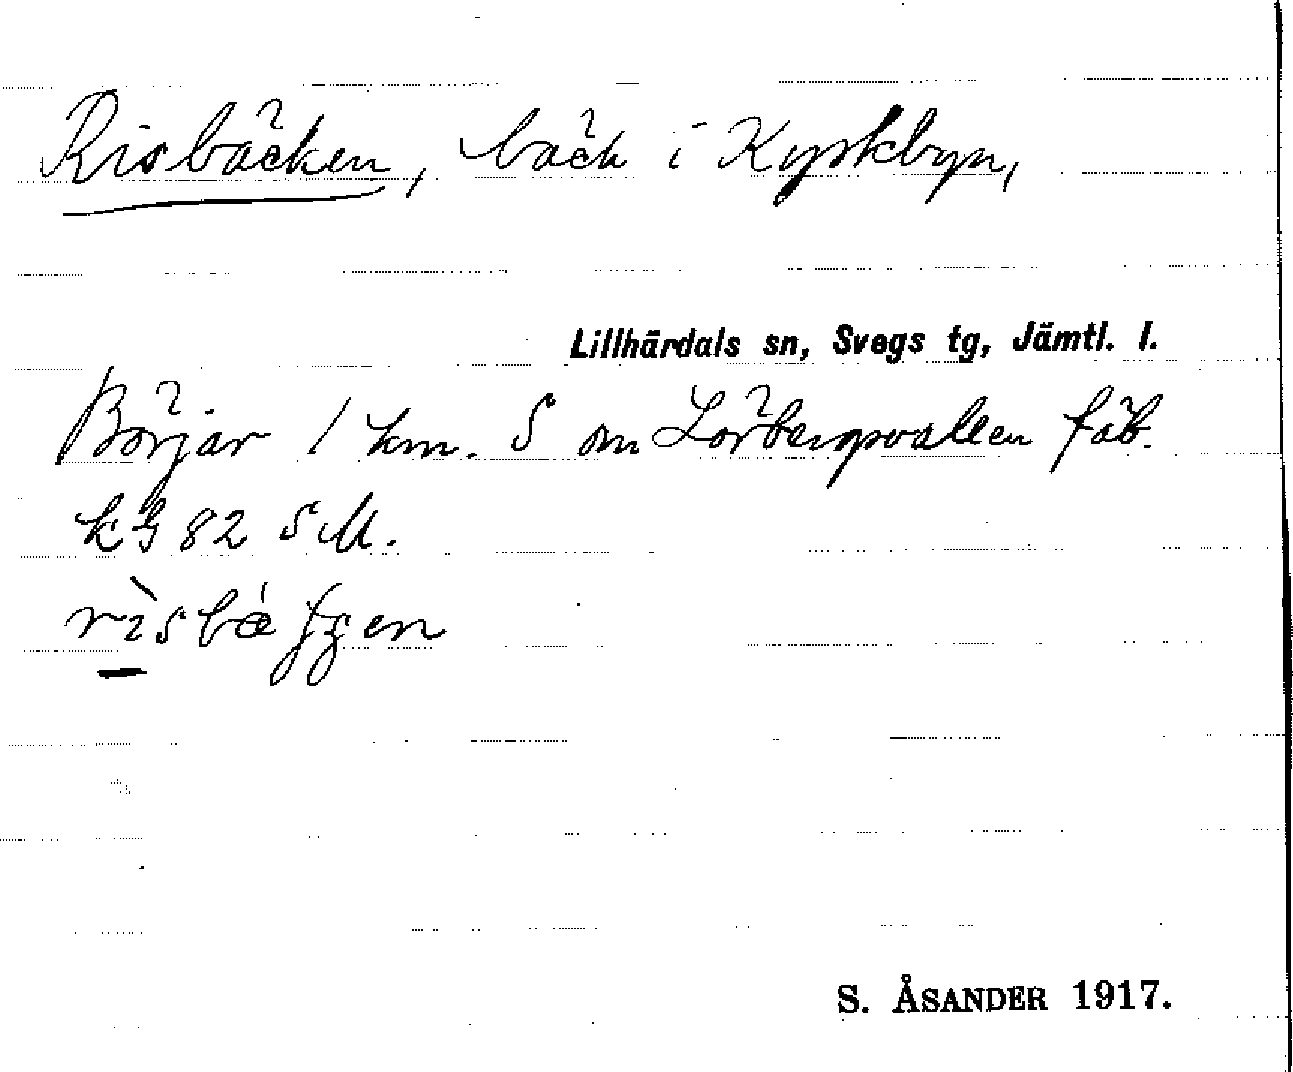 Risbäcken, bäck i Kyrkbyn,
Lillhärdals sn, Svegs tg, Jämtl. l.
Börjar 1 km. S om Lörbergsvallen fäb.
kg 82 SM.
S. ÅSANDER 1917.